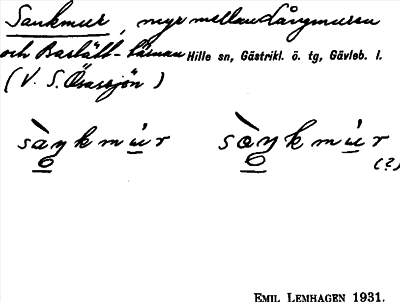 Sankmur, myr mellan Långmuren
och Barlått-tärnan Hille sn, Gästrikl. ö. tg, Gävleb. l.
(V. S. Ösassjön)
sàŋkmúr sòŋkmúr
o o (?)
EMIL LEMHAGEN 1931.